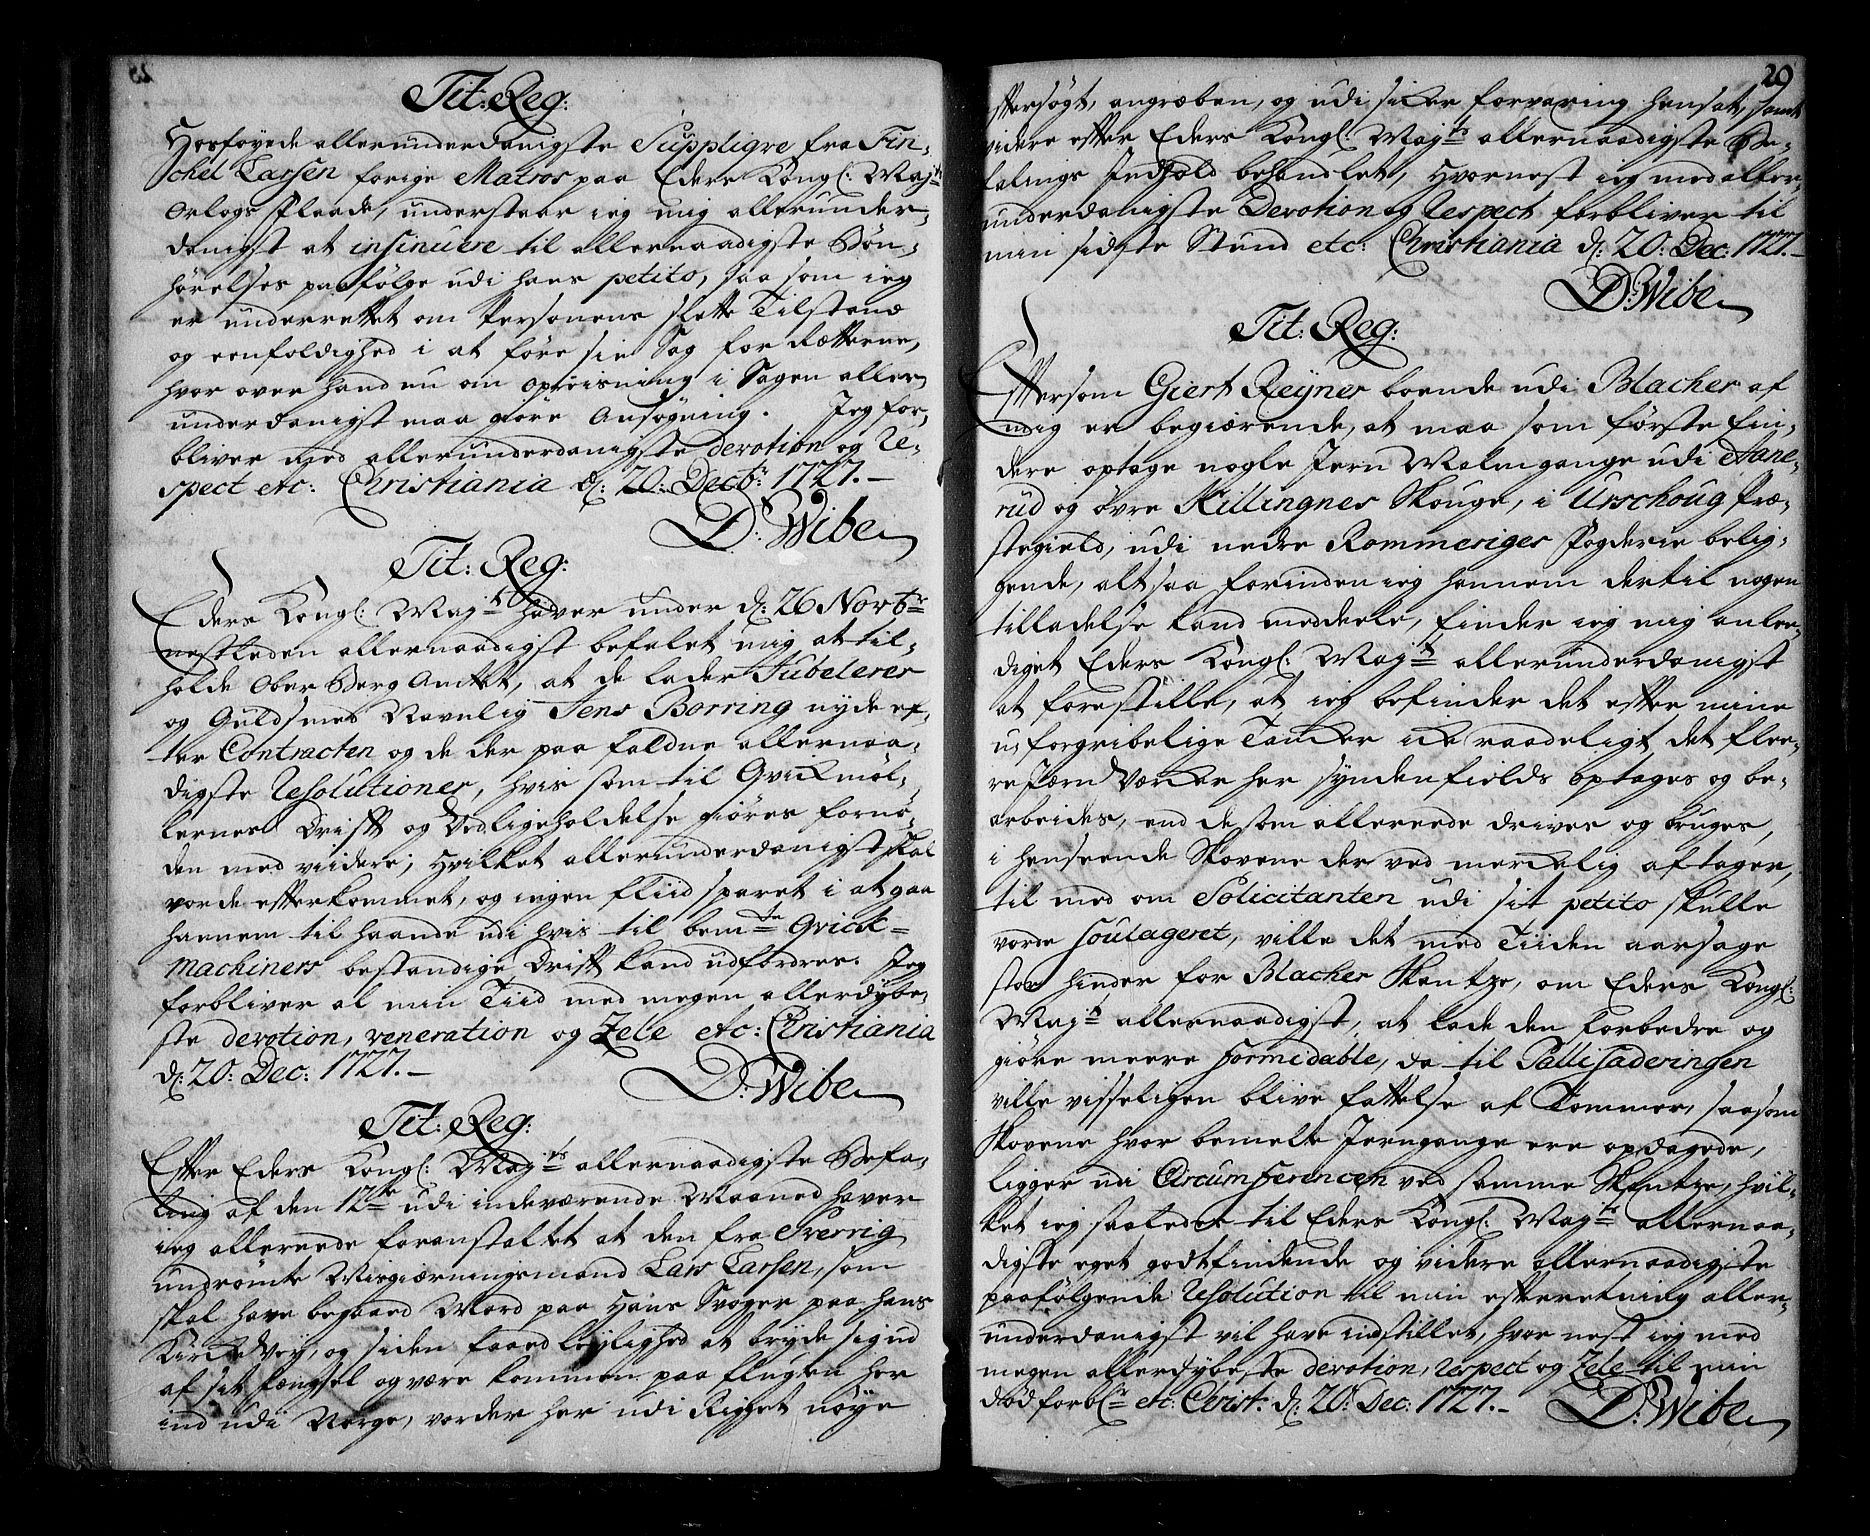 Tit: Reg:
Hosføyede allerunderdanigste Suppliqve fra Fin,
chel Larsen forige Matros paa Eders Kongl: Maj.ts
Orlogs Flaade, understaar jeg mig allerunder,
danigst at insinuere til allernaadigste Bøn,
hørelses paafølge udi hans petito, saa som jeg
er underrettet om Personens slette Tilstand
og eenfoldighed i at føre sin Sag for Rætterne,
hvor over hand nu om opreisning i Sagen aller
underdanigst maa giøre Ansøgning. Jeg for,
bliver med allerunderdanigste devotion og Re,
spect etc: Christiania d: 20: Decbr: 1727.
D: Wibe
Tit: Reg:
Eders Kongl: Maj.t haver under d: 26 Novbr
nestleden allernaadigst befalet mig at til,
holde Ober Berg Amtet, at de lader Jubelerer
og Guldsmed Navnlig Jens Borring nyde ef,
ter Contracten og de der paa faldne allernaa,
digste Resolutioner, hvis som til Qvickmøl,
lernes Drifft og Vedligeholdelse giøres fornø,
den med viidere; Hvilket allerunderdanigst skal
vorde efterkommet, og ingen fliid sparet i at gaa
hannem til haande udi hvis til bem.te Qvick=
Machiners bestandige Drifft kand udfordres. Jeg
forbliver al min Tiid med megen allerdybe,
ste devotion, veneration og Zele etc: Christiania
d: 20: Dec: 1727.
D: Wibe
Tit: Reg:
Efter Eders Kongl: Maj.ts allernaadigste Befa,
ling af den 12te udi indeværende Maaned haver
jeg allereede foranstaltet at den fra Sverrig
undrømte Misgiærningsmand Lars Larsen, som
skal have begaaed Mord paa Hans Svoger paa hans
Kircke Vej, og siden faaed leylighed at bryde sig ud
af sit fængsel og være kommen paa flugten her
ind udi Norge, vorder her udi Riget nøye
20
eftersøgt, angræben, og udi sicker forvaring hensat, samt
videre efter Eders Kongl: Maj.ts allernaadigste Be,
falings Indhold behandlet, Hvornest jeg med aller,
underdanigste Devotion og Respect forbliver til
min sidste Stund etc: Christiania d: 20: Dec: 1727.
D: Wibe
Tit: Reg:
Eftersom Giert Reyner boende udi Blacher af
mig er begiærende, at maa som første Fin,
dere optage nogle Jern Malmgange udi Hane,
rud og øvre Killingnes Skouge, i Urschoug Præ,
stegield, udi nedre Rommeriges Fogderie belig,
gende, altsaa forinden jeg hannem dertil nogen
tilladelse kand meddeele, finder jeg mig anlee,
diget Eders Kongl: Maj.t allerunderdanigst
at forestille, at jeg befinder det efter mine
u-forgribelige Tancker icke raadeligt, det flee,
re Jærn Værcker her syndenfields optages og be,
arbeides, end de som allereede drives og bruges,
i henseende Skovene der ved merckelig aftager,
til med om Solicitanten udi sit petito skulle
vorde soulageret, ville det med Tiiden aarsage
stor hinder for Blacher Skantze, om Eders Kongl:
Maj.t allernaadigst, at lade den forbedre og
giøre meere formidable, da til Pallisaderingen
ville visseligen blive fattelse af Tømmer, saasom
Skovene hvor bemelte Jerngange ere opdagede,
ligger udi Circumferencen ved samme Skantze, hvil,
ket jeg saaledes til Eders Kongl: Maj.ts allernaa,
digste eget godtfindende og videre allernaadigste
paafølgende Resolution til min efterretning aller,
underdanigst vil have indstillet, hvor nest jeg med
megen allerdybeste devotion, respect og Zele til min
død forbl:r etc: Christ: d: 20: Dec: 1727.
D: Wibe